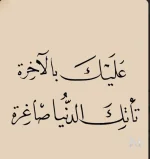 عَلَيْكَ بِالْآخِرَة
تَأْتِكَ الدُّنْيَا صَاغِرَة